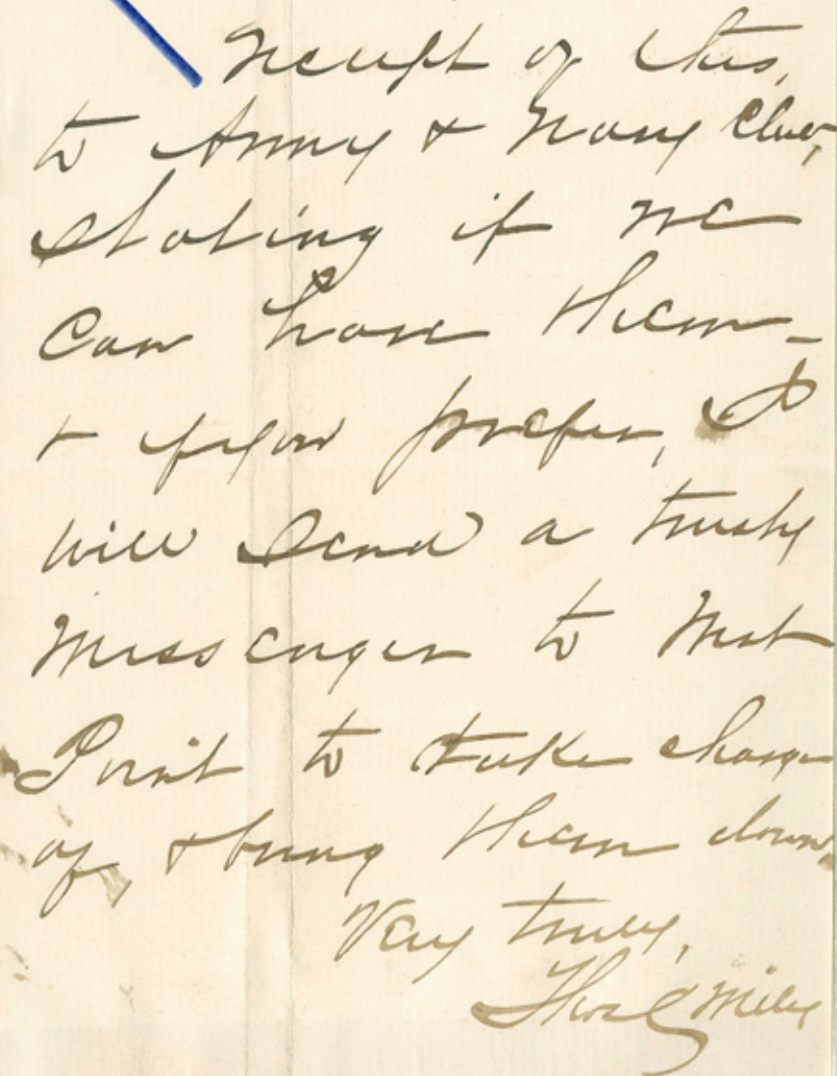 receipt of this,
to Army & Navy Club,
stating if we
can have them -
& if you prefer, I
will send a trusty
messenger to West
Point to take charge
of, & bring them down.
Very truly,
Thos